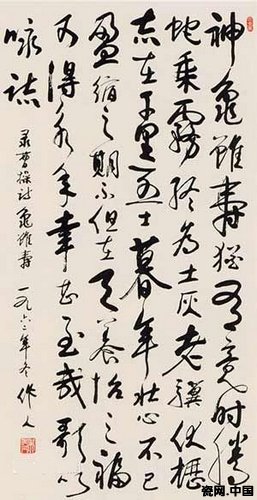 神龜雖壽猶有竟時騰
蛇乘霧終為土灰老驥伏櫪
志在千里烈士暮年壯心不已
盈縮之期不但在天養怡之福
可得永年幸甚至哉歌以
咏誌
录曹操詩龜雖壽 一九六二年冬 作人
瓷网.中国